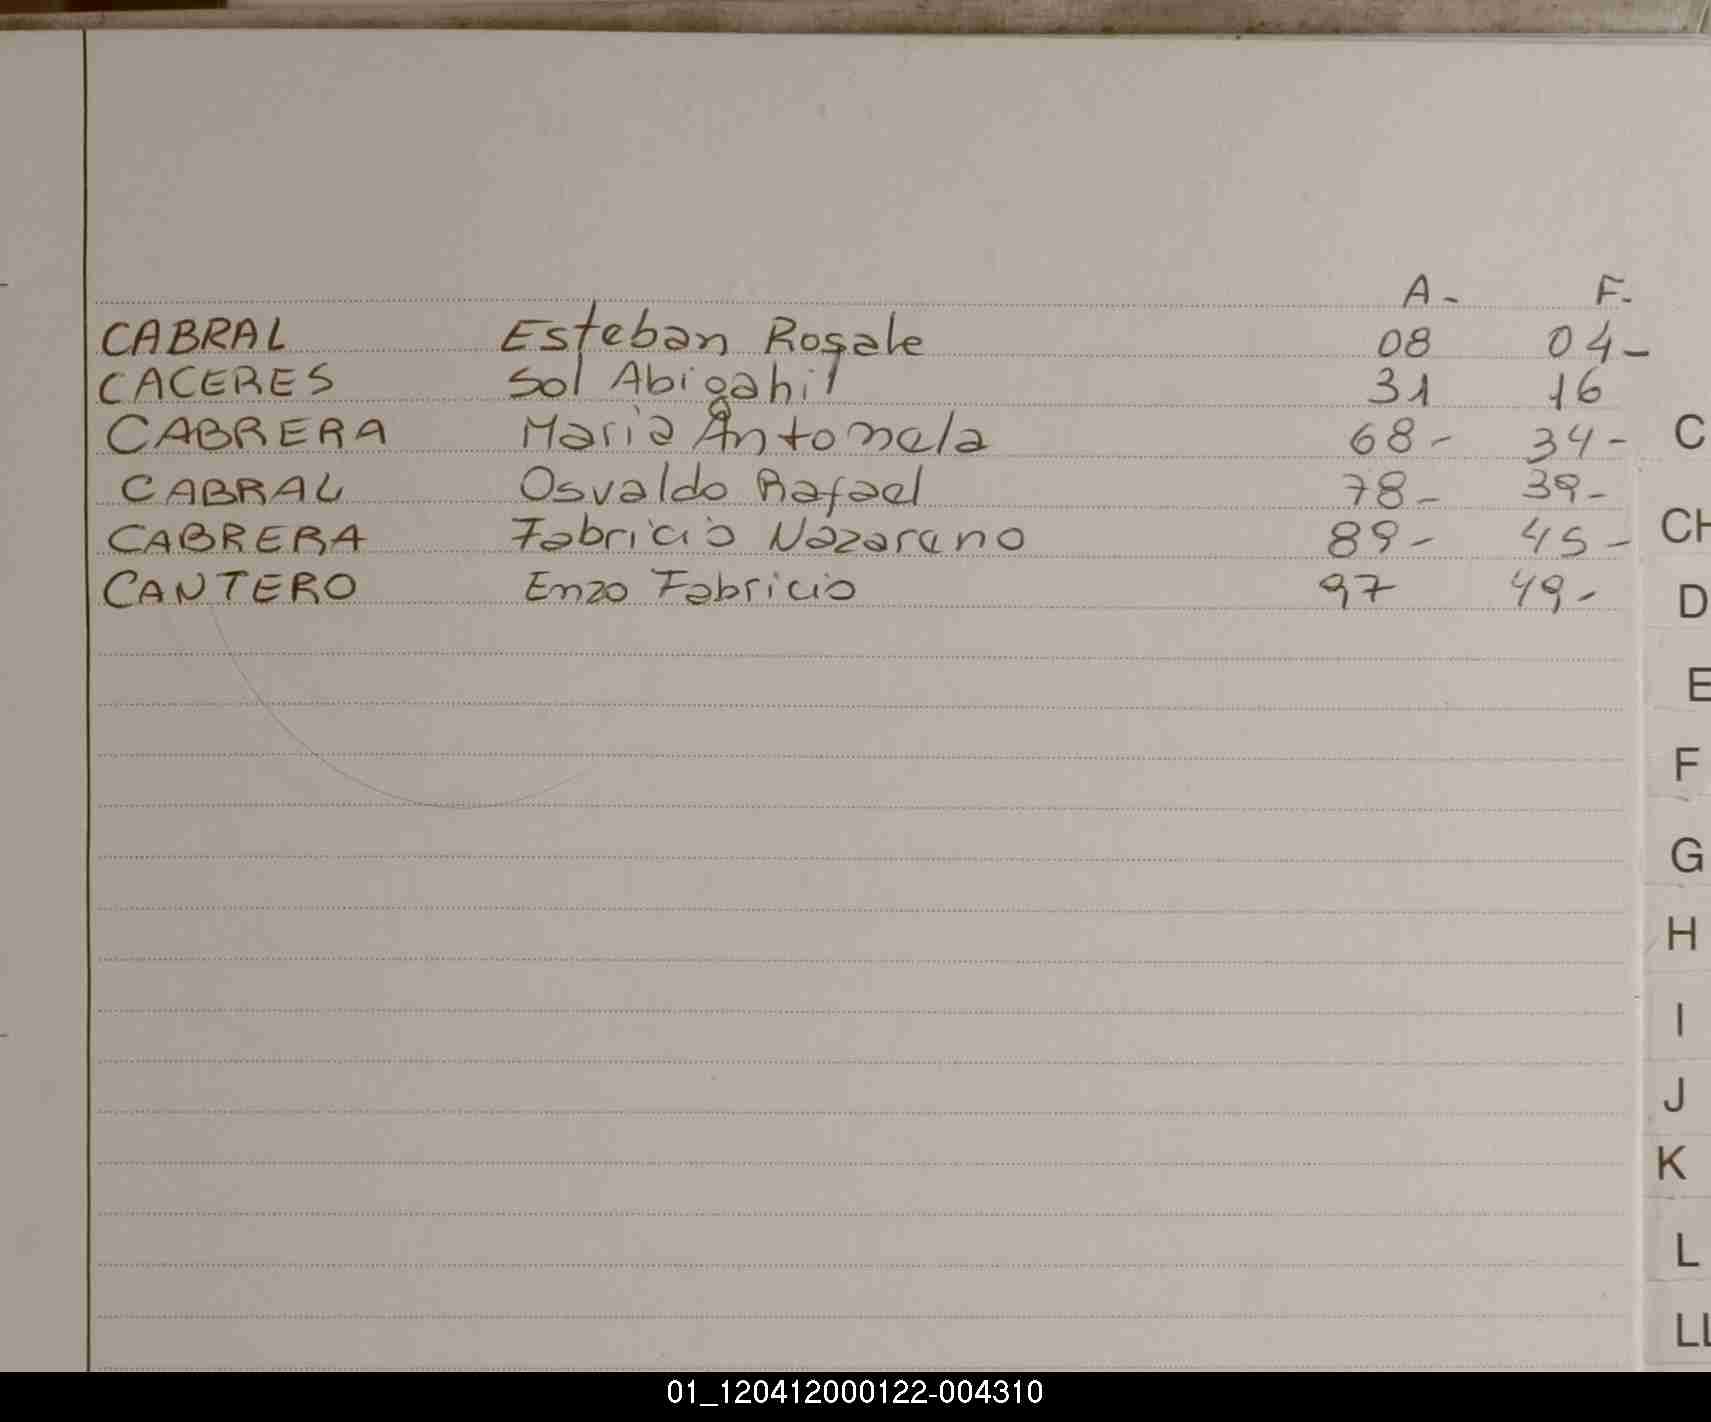 A - F-
CABRAL Esteban Rosale 08 04-
CACERES Sol Abigahil 31 16
CABRERA Maria Antonela 68- 34-
CABRAL Osvaldo Rafael 78- 39-
CABRERA Fabricio Nazareno 89- 45-
CANTERO Enzo Fabricio 97 49-
C
CH
D
E
F
G
H
I
J
K
L
LL
01_120412000122-004310